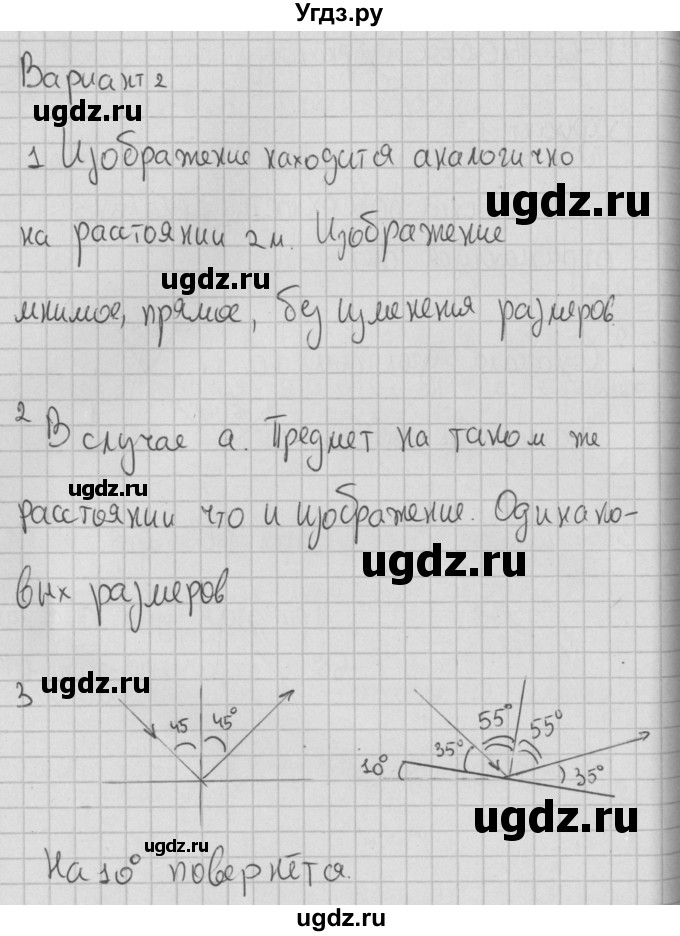 Угдз.ру
Вариант 2
ugdz.ru
1 Изображение находится аналогично
ugdz.ru
на расстоянии 2м. Изображение
ugdz.ru
мнимое, прямое, без изменения размеров.
2 В случае а. Предмет на таком же
ugdz.ru
расстоянии что и изображение. Одинако-
ugdz.ru
вых размеров
3
ugdz.ru
45 45°
10° 35° 55° 55° 35°
ugdz.ru
ugdz.ru
На 10° повернётся.
ugdz.ru